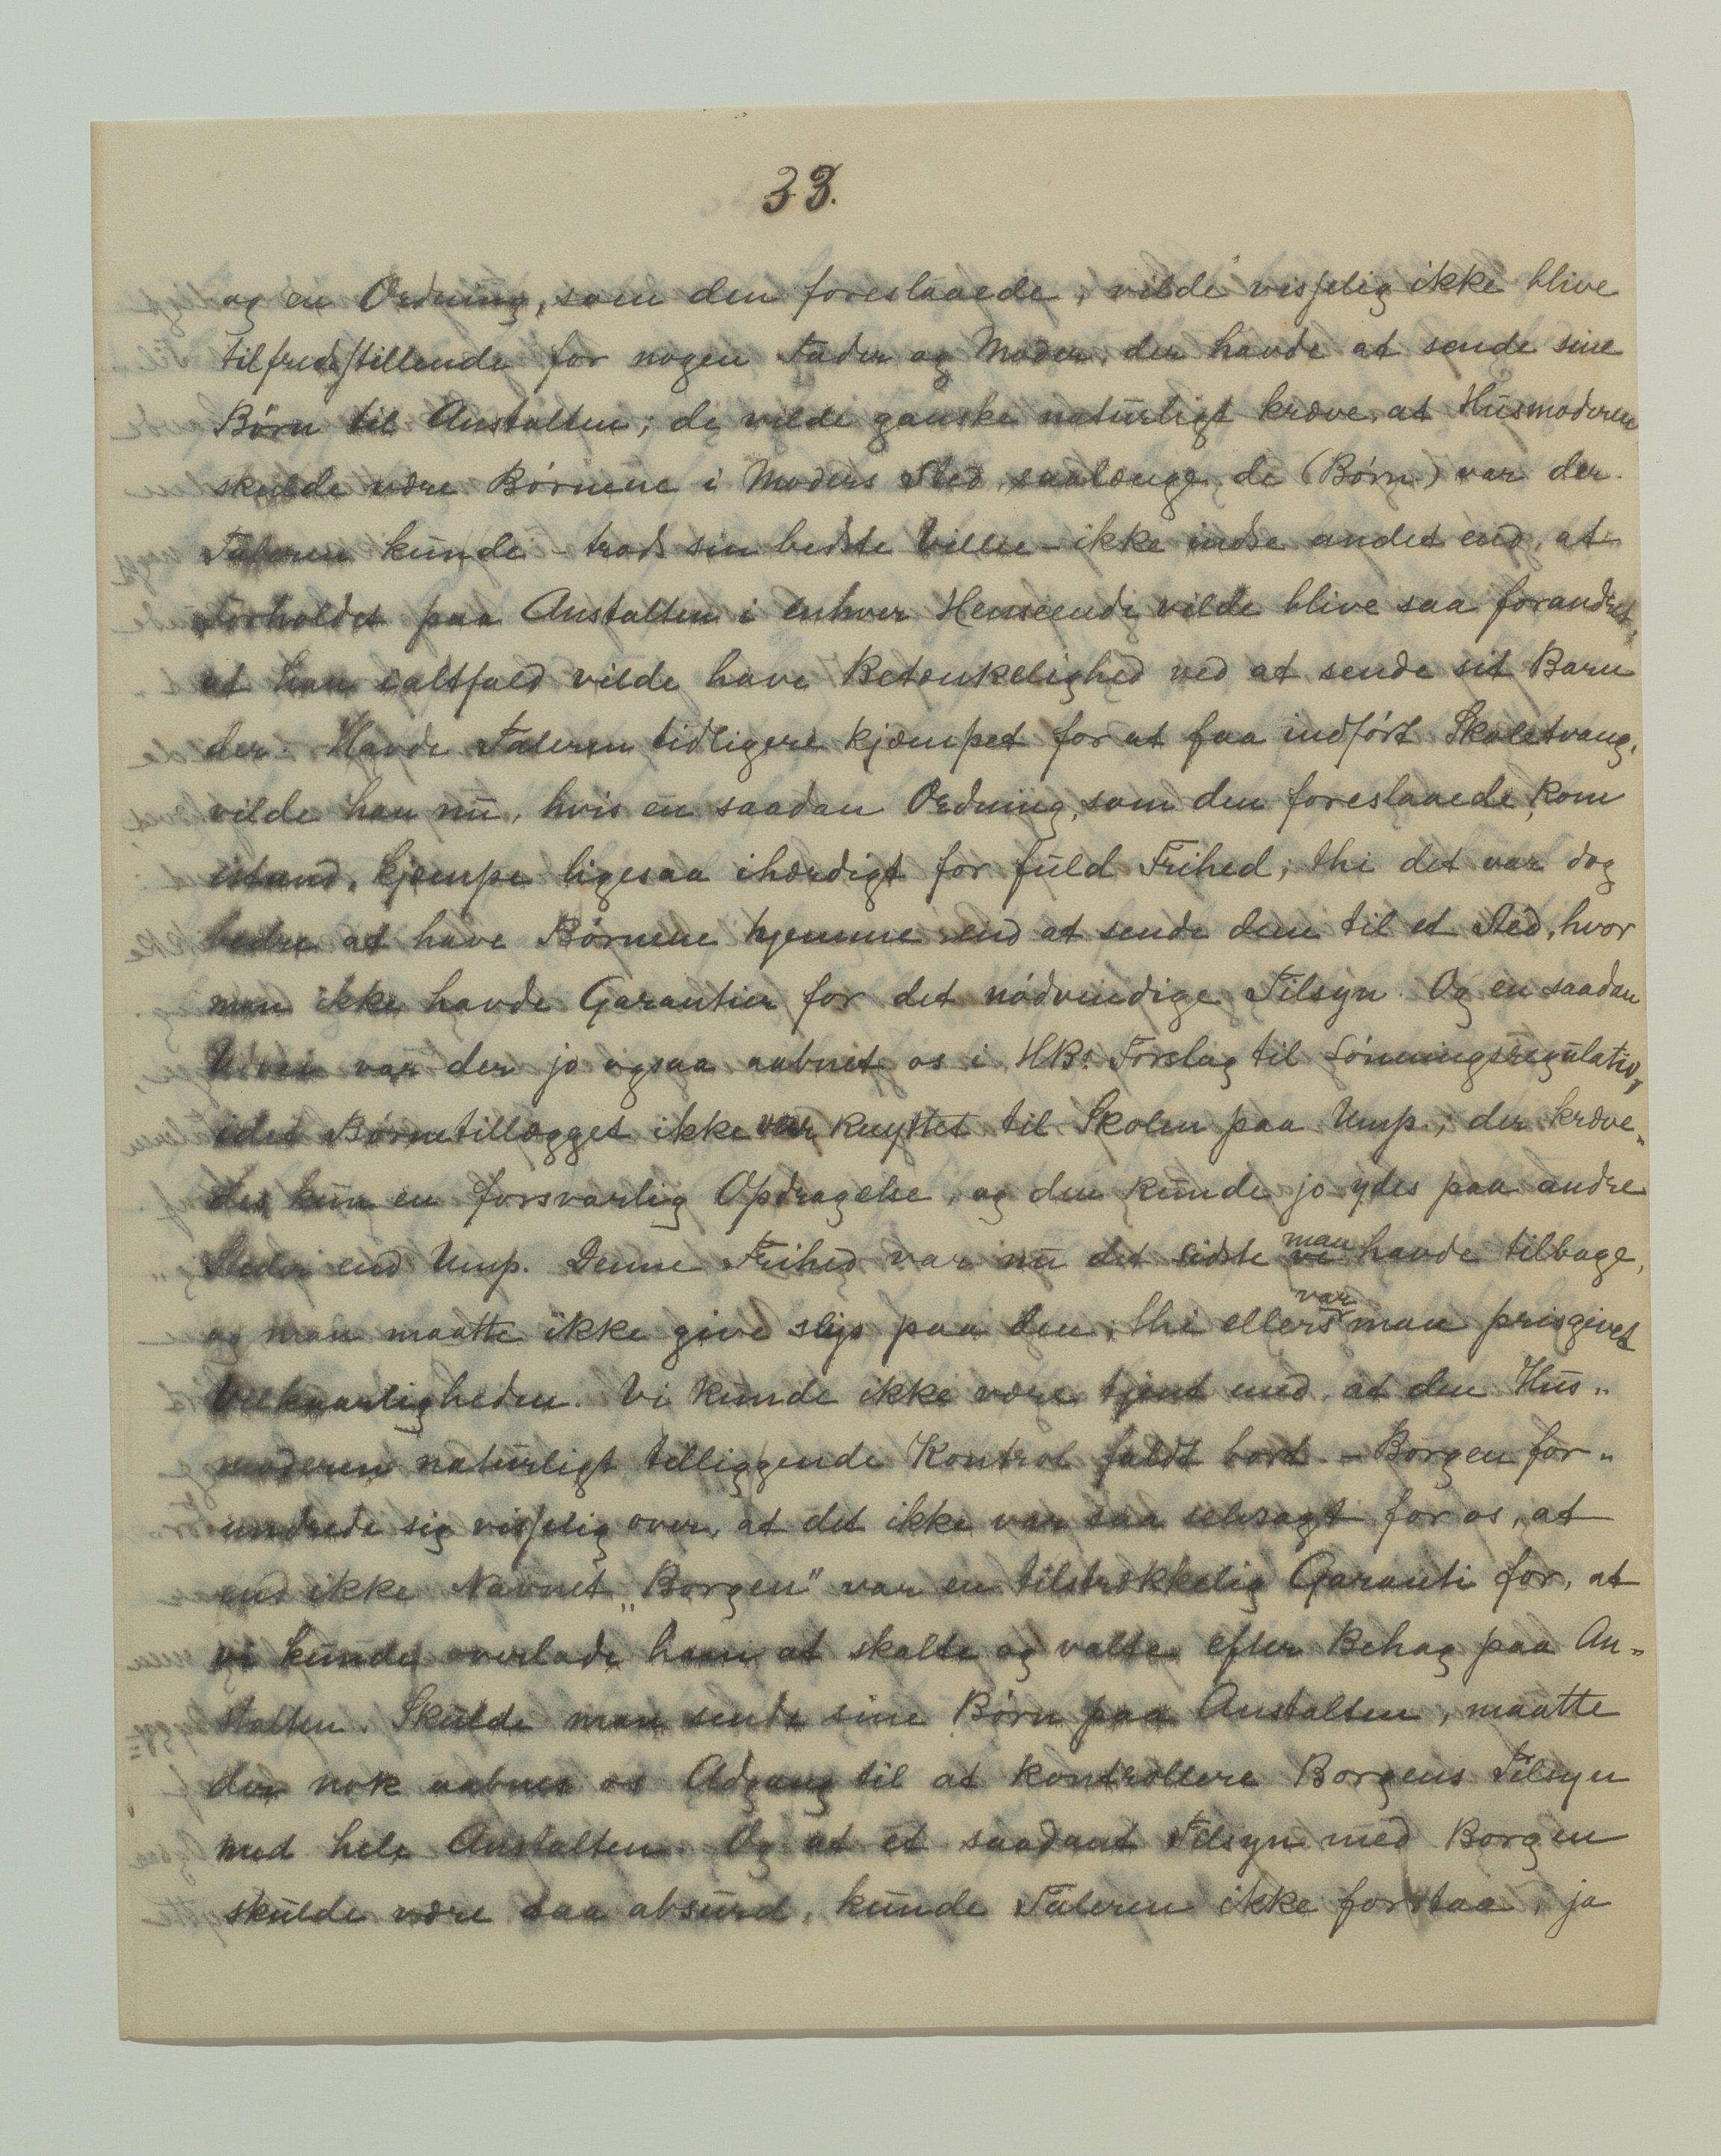 33.
og en Ordning, som den foreslaaede, vilde visselig ikke blive
tilfredsstillende for nogen Fader og Moder, der havde at sende sine
Børn til Anstalten; de vilde ganske naturligt kræve, at Husmoderen
skulde være Børnene i Moders Sted, saalænge de (Børn) var der.
Taleren kunde - trods sin bedste Villie - ikke indse andet end, at
Forholdet paa Anstalten i enhver Henseende vilde blive saa forandret,
at han ialtfald vilde have Betænkelighed ved at sende sit Barn
der. Havde Taleren tidligere kjæmpet for at faa indført Skoletvang,
vilde han nu, hvis en saadan Ordning, som den foreslaaede, kom
istand, kjæmpe ligesaa ihærdigt for fuld Frihed; thi det var dog
bedre at have Børnene hjemme end at sende dem til et Sted, hvor
man ikke havde Garantier for det nødvendige Tilsyn. Og en saadan
Udvei var der jo ogsaa aabnet os i HBs. Forslag til Lønningsregulativ,
idet Børnetillægget ikke var knyttet til Skolen paa Ump.; der kræve„
des kun en forsvarlig Opdragelse, og den kunde jo ydes paa andre
Steder end Ump. Denne Frihed var nu det sidste vi man havde tilbage,
og man maatte ikke give slip paa den; thi ellers var man prisgivet
Vilkaarligheden. Vi kunde ikke være tjent med, at den Hus„
moderen naturligt tilliggende Kontrol faldt bort. - Borgen for„
undrede sig visselig over, at det ikke var saa selvsagt for os, at
end ikke Navnet „Borgen" var en tilstrækkelig Garanti for, at
vi kunde overlade ham at skalte og valte efter Behag paa An„
stalten. Skulde man sende sine Børn paa Anstalten, maatte
der nok aabnes os Adgang til at kontrollere Borgens Tilsyn
med hele Anstalten. Og at et saadant Tilsyn med Borgen
skulde være saa absurd, kunde Taleren ikke forstaa, ja